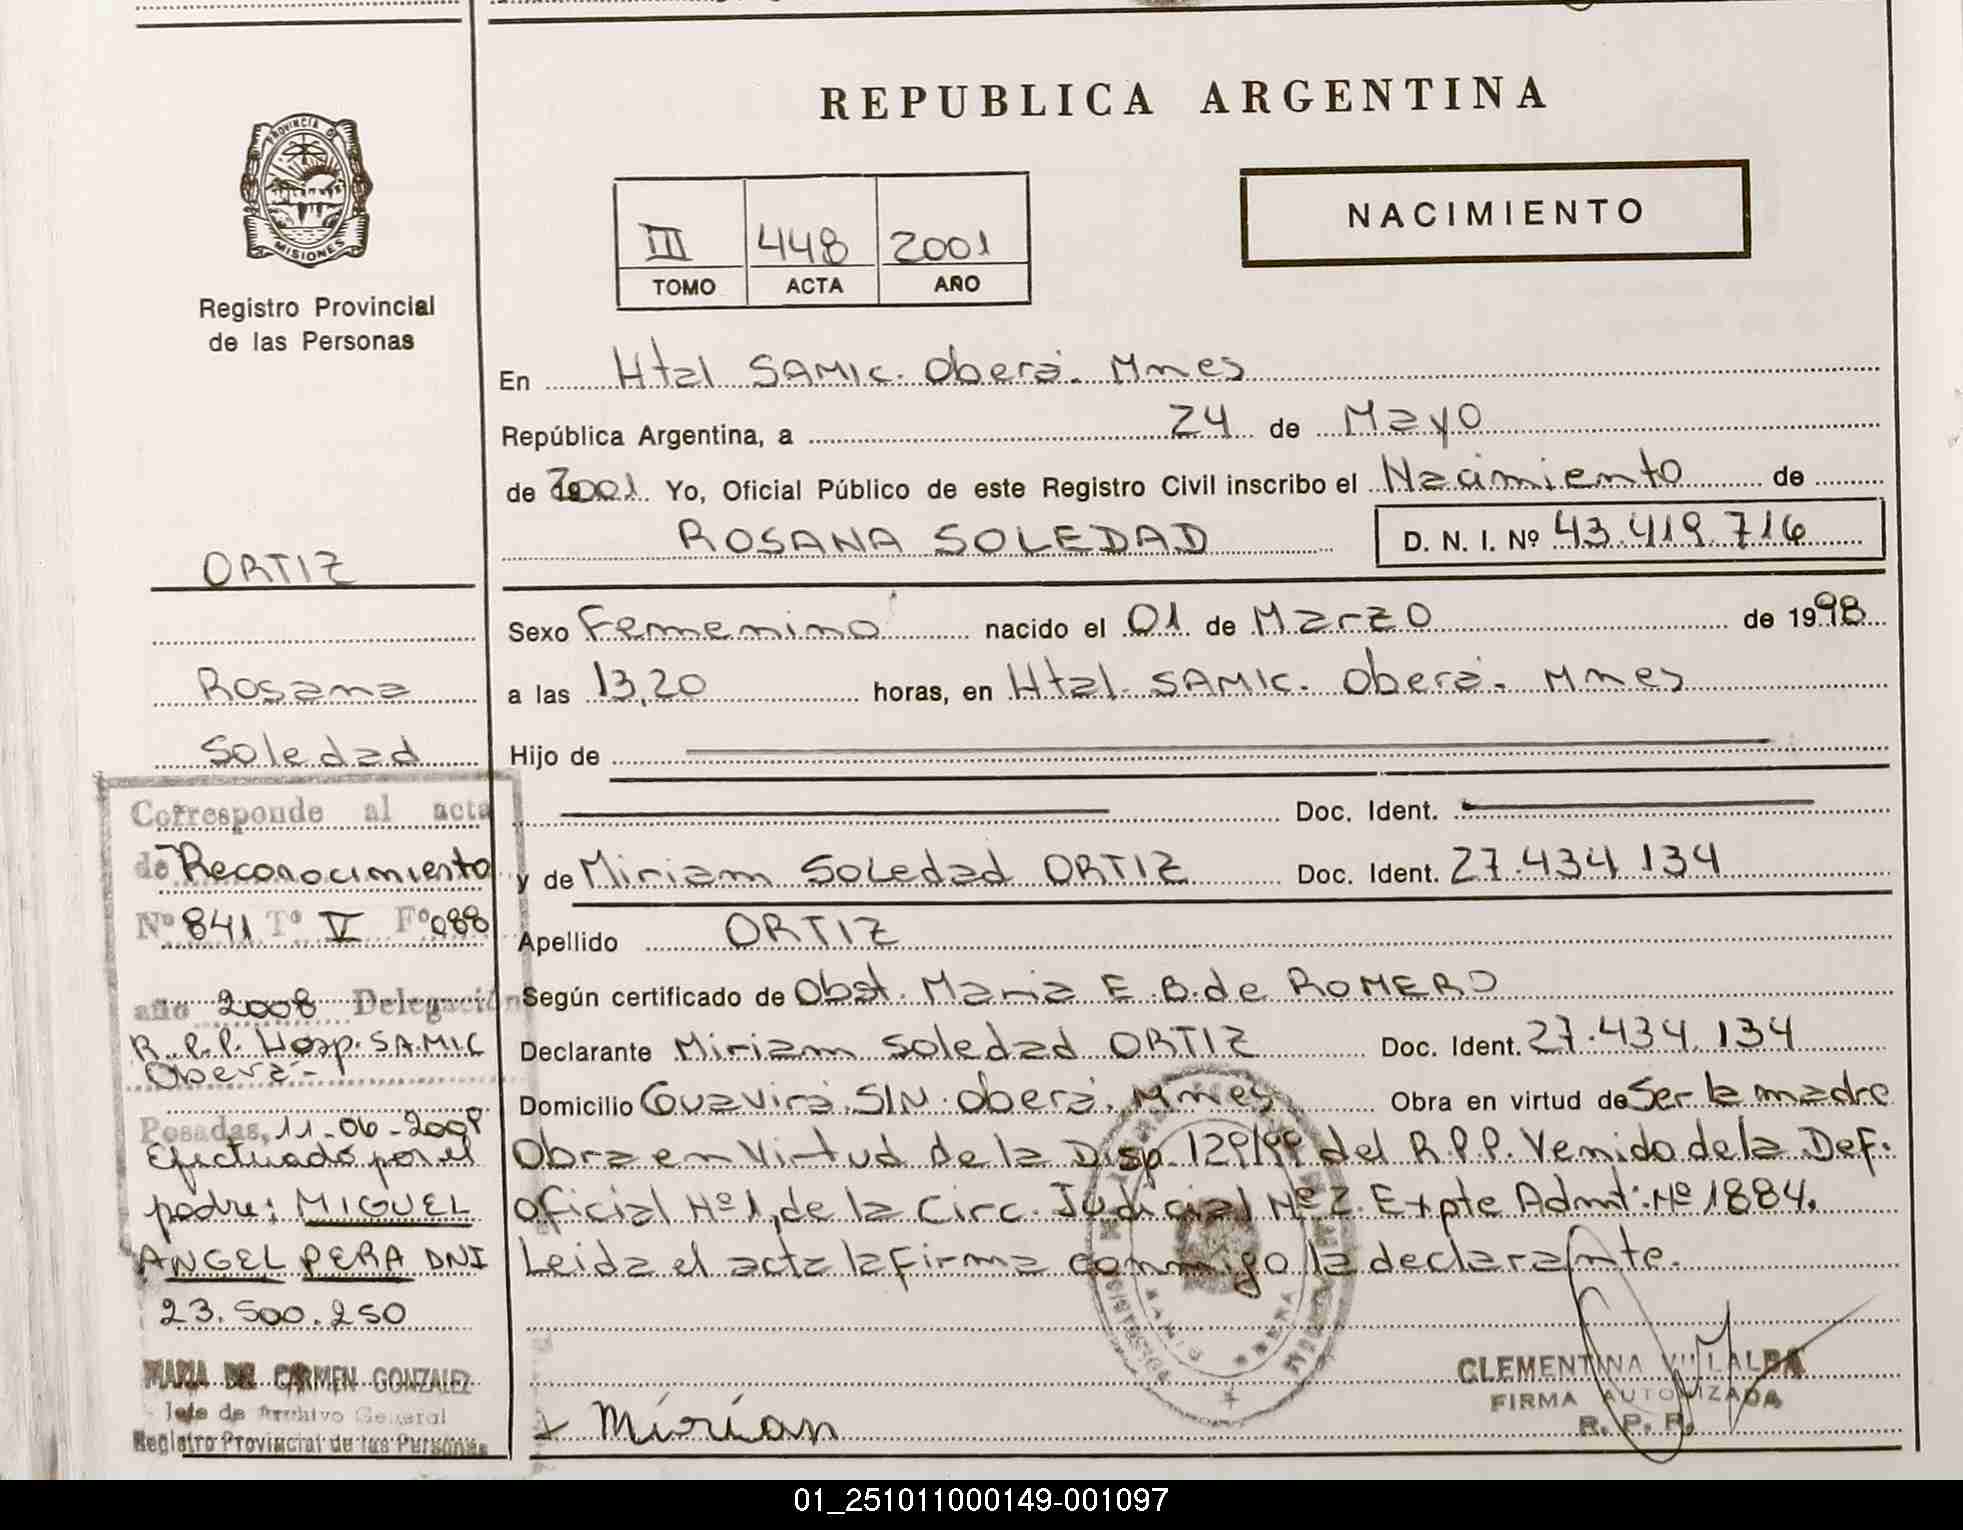 REPUBLICA ARGENTINA
PROVINCIA DE
MISIONES
Registro Provincial
de las Personas
NACIMIENTO
III 448 2001
TOMO ACTA AÑO
En Htal SAMIC. Oberá. Mnes
República Argentina, a 24 de Mayo
de 2001. Yo, Oficial Público de este Registro Civil inscribo el Nacimiento de
ROSANA SOLEDAD D. N. I. Nº 43.419.716
Sexo Femenino nacido el 01 de Marzo de 1998
a las 13,20 horas, en Htal. SAMIC. Oberá. Mnes
Hijo de
Doc. Ident.
y de Miriam Soledad ORTIZ Doc. Ident. 27.434.134
Apellido ORTIZ
Según certificado de Obst. Maria E.B. de ROMERO
Declarante Miriam Soledad ORTIZ Doc. Ident. 27.434.134
Domicilio Guavirá. S/N. Oberá. Mnes Obra en virtud de Ser la madre
Obra en Virtud de la Disp. 129/99 del R.P.P. Venido de la Def.
Oficial Nº1, de la Circ. Judicial Nº2. Expte Admt: Nº 1884.
Leida el acta la firma conmigo la declarante.
Mirían
CLEMENTINA VILLALBA
FIRMA AUTORIZADA
R. P. P.
ORTIZ
Rosana
Soledad
Corresponde al acta
de Reconocimiento
Nº 841 Tº V Fº 088
año 2008 Delegación
R.P.P. Hosp. SAMIC
Oberá-
Posadas, 11-06-2008
Efectuado por el
padre: MIGUEL
ANGEL PERA DNI
23.500.250
MARIA DEL CARMEN GONZALEZ
Jefe de Archivo General
Registro Provincial de las Personas
01_251011000149-001097